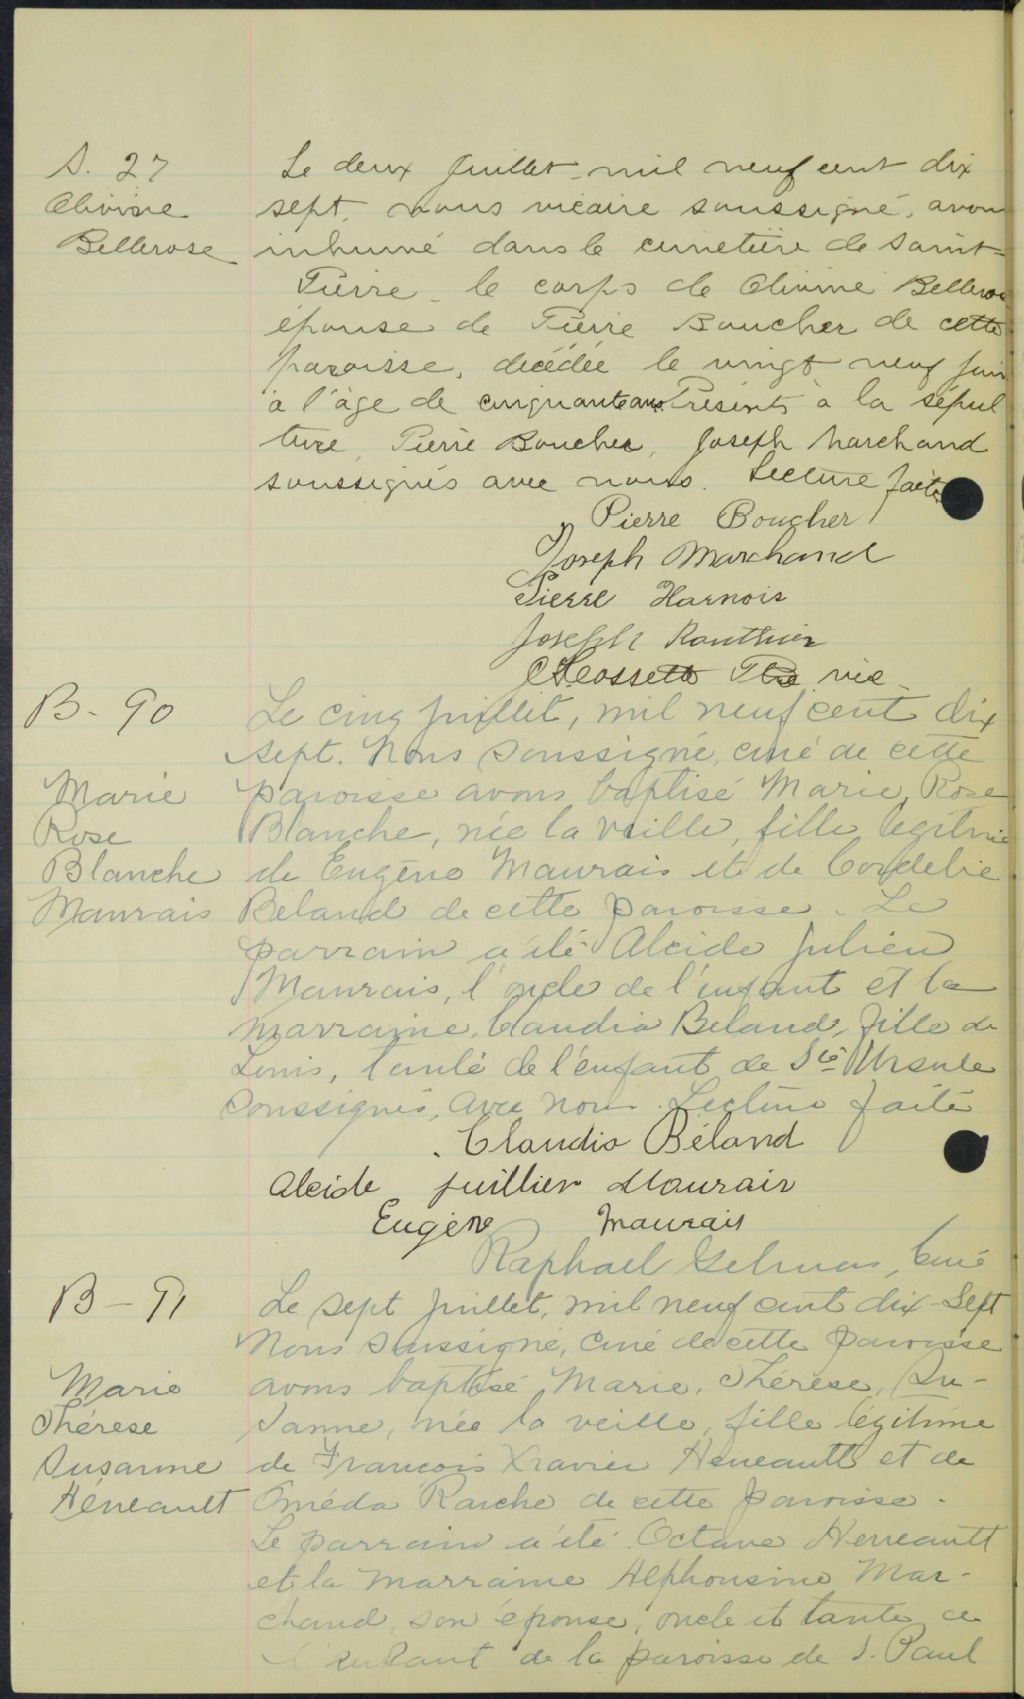 S. 27
Olivine
Bellerose
Le deux Juillet mil neuf cent dix
sept, nous vicaire soussigné, avons
inhumé dans le cimetière de Saint-
Pierre le corps de Olivine Bellerose
épouse de Pierre Boucher de cette
paroisse, décédée le vingt neuf juin
à l'âge de cinquante ans. Présents à la sépul
ture, Pierre Boucher, Joseph Marchand
soussignés avec nous. Lecture faite
Pierre Boucher
Joseph Marchand
Pierre Harnois
Joseph Routhier
Ptre vic
B- 90
Marie
Rose
Blanche
Maurais
Le cinq juillet, mil neuf cent dix
sept. Nous soussigné, curé de cette
paroisse avons baptisé Marie, Rose
Blanche, née la veille, fille légitime
de Eugène Maurais et de Cordelie
Béland de cette paroisse. Le
parrain a été Alcide Julien
Maurais, l'oncle de l'enfant et la
marraine, Claudia Beland, fille de
Louis, tante de l'enfant de Ste Ursule
soussignés, avec nous. Lecture faite
Claudia Béland
Alcide Juillien Maurais
Eugène Maurais
Raphael Gelinas, Curé
B - 91
Marie
Thérese
Susanne
Héneault
Le sept juillet, mil neuf cent dix-sept
Nous soussigné, curé de cette paroisse
avons baptisé Marie, Thérèse, Su-
sanne, née la veille, fille légitime
de François Xravier Heneault et de
Oméda Rarche de cette paroisse.
Le parrain a été Octave Heneault
et la marraine Alphonsine Mar-
chand, son épouse, oncle et tante de
l'enfant de la paroisse de S. Paul